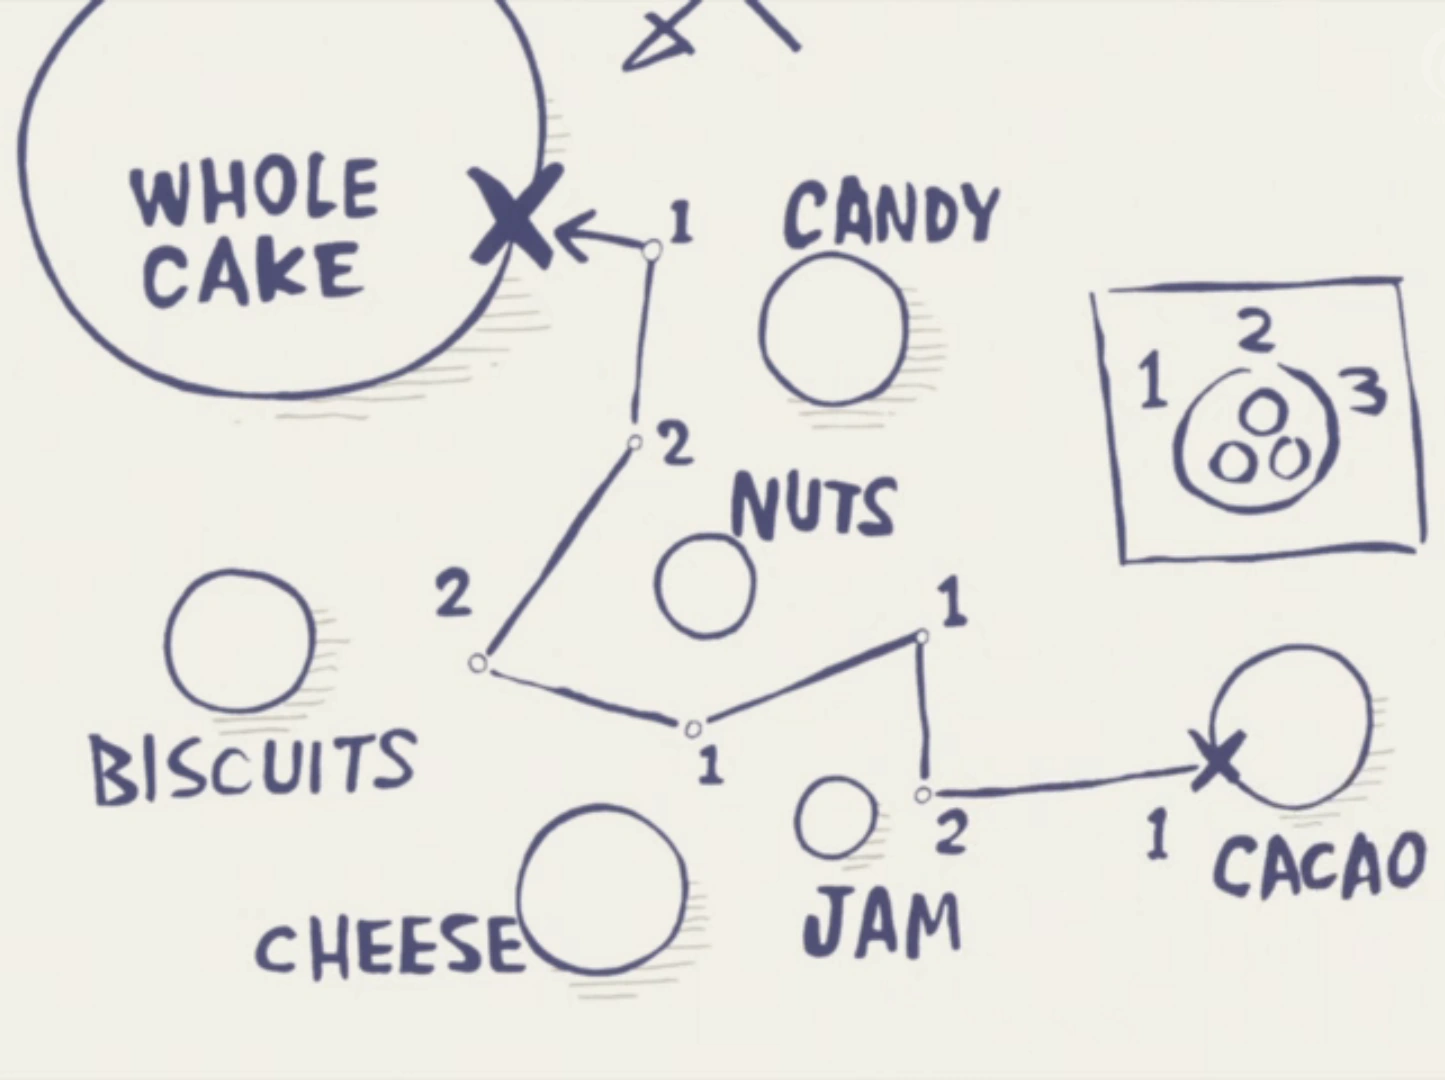 WHOLE
CAKE
1
CANDY
2
1
3
2
NUTS
2
1
BISCUITS
1
2
1
CACAO
CHEESE
JAM